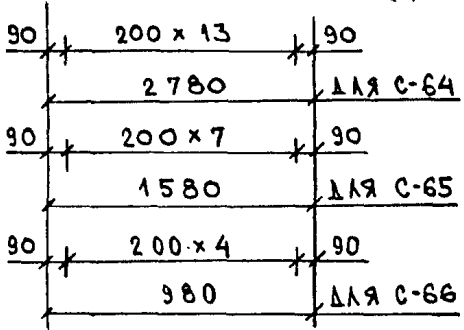 90 200 × 13 90
2780 ДЛЯ С-64
90 200 × 7 90
1580 ДЛЯ С-65
90 200 × 4 90
980 ДЛЯ С-66